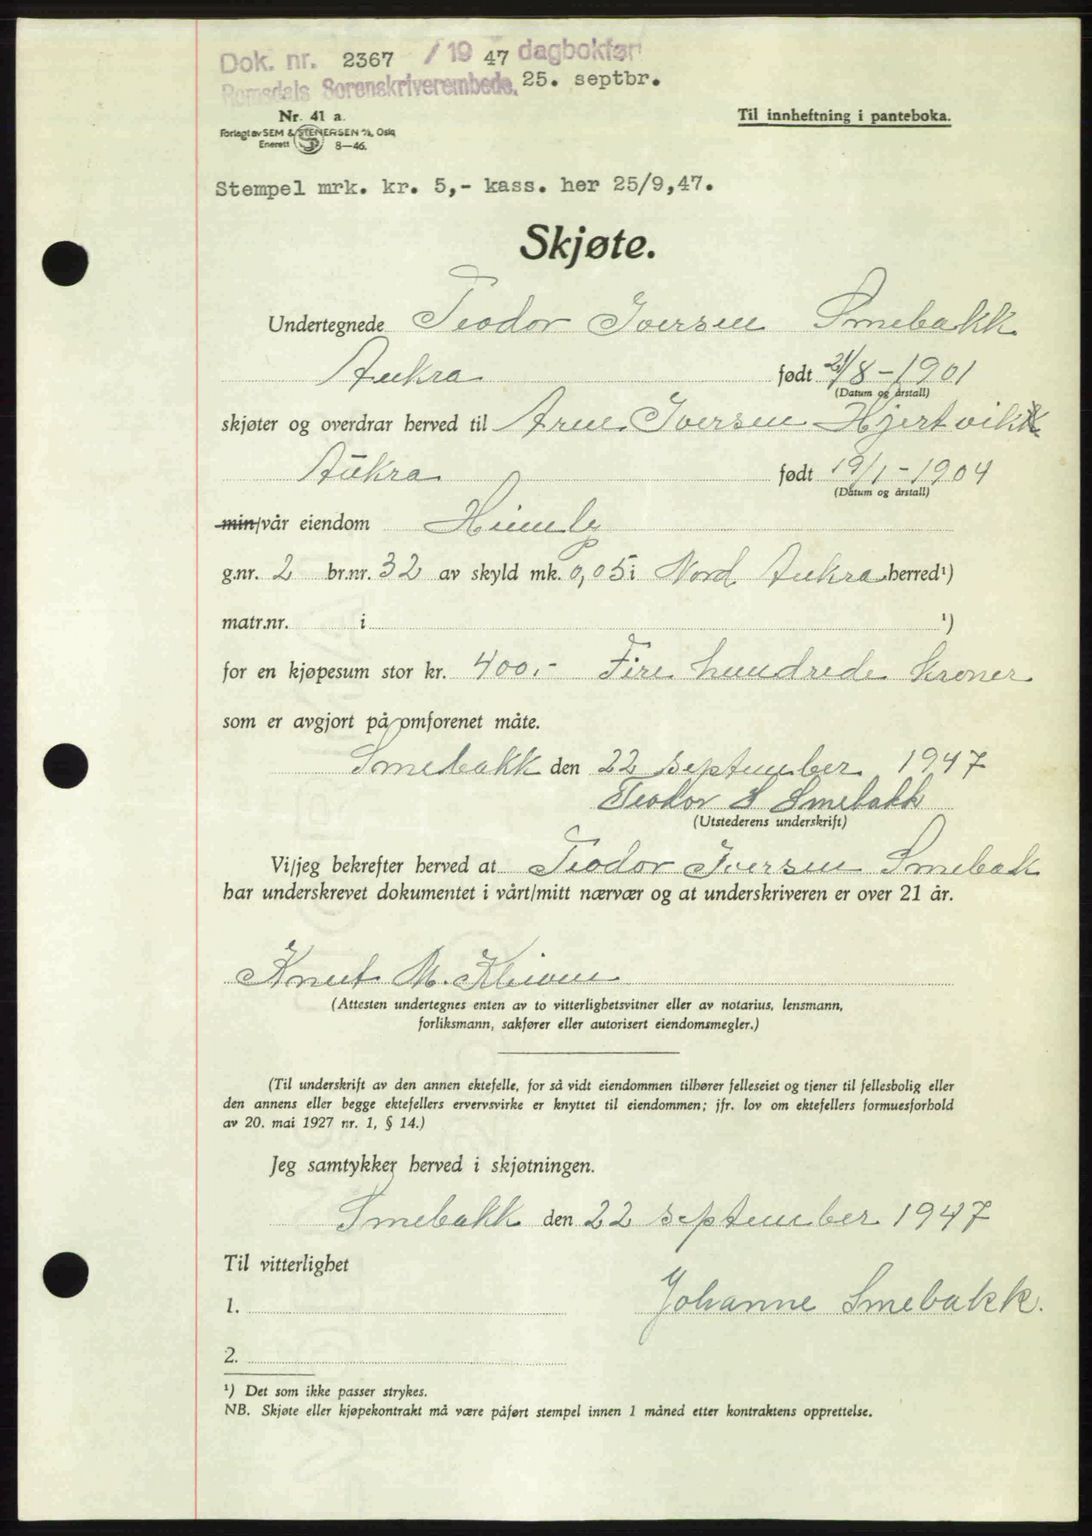 Dok. nr. 2367 / 19 47 dagbokført
Romsdals Sorenskriverembede. 25. septbr.
Nr. 41 a.
Til innheftning i panteboka.
Forlagt av SEM & STENERSEN A/S, Oslo
Enerett 8—46.
Stempel mrk. kr. 5,- kass. her 25/9,47.
Skjøte.
Undertegnede Teodor Iversen Smebakk
Aukra født 21/8 – 1901
(Datum og årstall)
skjøter og overdrar herved til Arne Iversen Hjertvik
Aukra født 19/1 – 1904
(Datum og årstall)
min/vår eiendom
g.nr. 2 br.nr. 32 av skyld mk. 0,05 i Nord Aukra herred¹)
matr.nr. i ¹)
for en kjøpesum stor kr. 400.- Fire hundrede kroner
som er avgjort på omforenet måte.
Smebakk den 22 september 1947
Teodor I Smebakk
(Utstederens underskrift)
Vi/jeg bekrefter herved at Teodor Iversen Smebak
har underskrevet dokumentet i vårt/mitt nærvær og at underskriveren er over 21 år.
Knut M. Kleven
(Attesten undertegnes enten av to vitterlighetsvitner eller av notarius, lensmann,
forliksmann, sakfører eller autorisert eiendomsmegler.)
(Til underskrift av den annen ektefelle, for så vidt eiendommen tilhører felleseiet og tjener til fellesbolig eller
den annens eller begge ektefellers ervervsvirke er knyttet til eiendommen; jfr. lov om ektefellers formuesforhold
av 20. mai 1927 nr. 1, § 14.)
Jeg samtykker herved i skjøtningen.
Smebakk den 22 september 1947
Til vitterlighet
1. Johanne Smebakk.
2.
¹) Det som ikke passer strykes.
NB. Skjøte eller kjøpekontrakt må være påført stempel innen 1 måned etter kontraktens opprettelse.